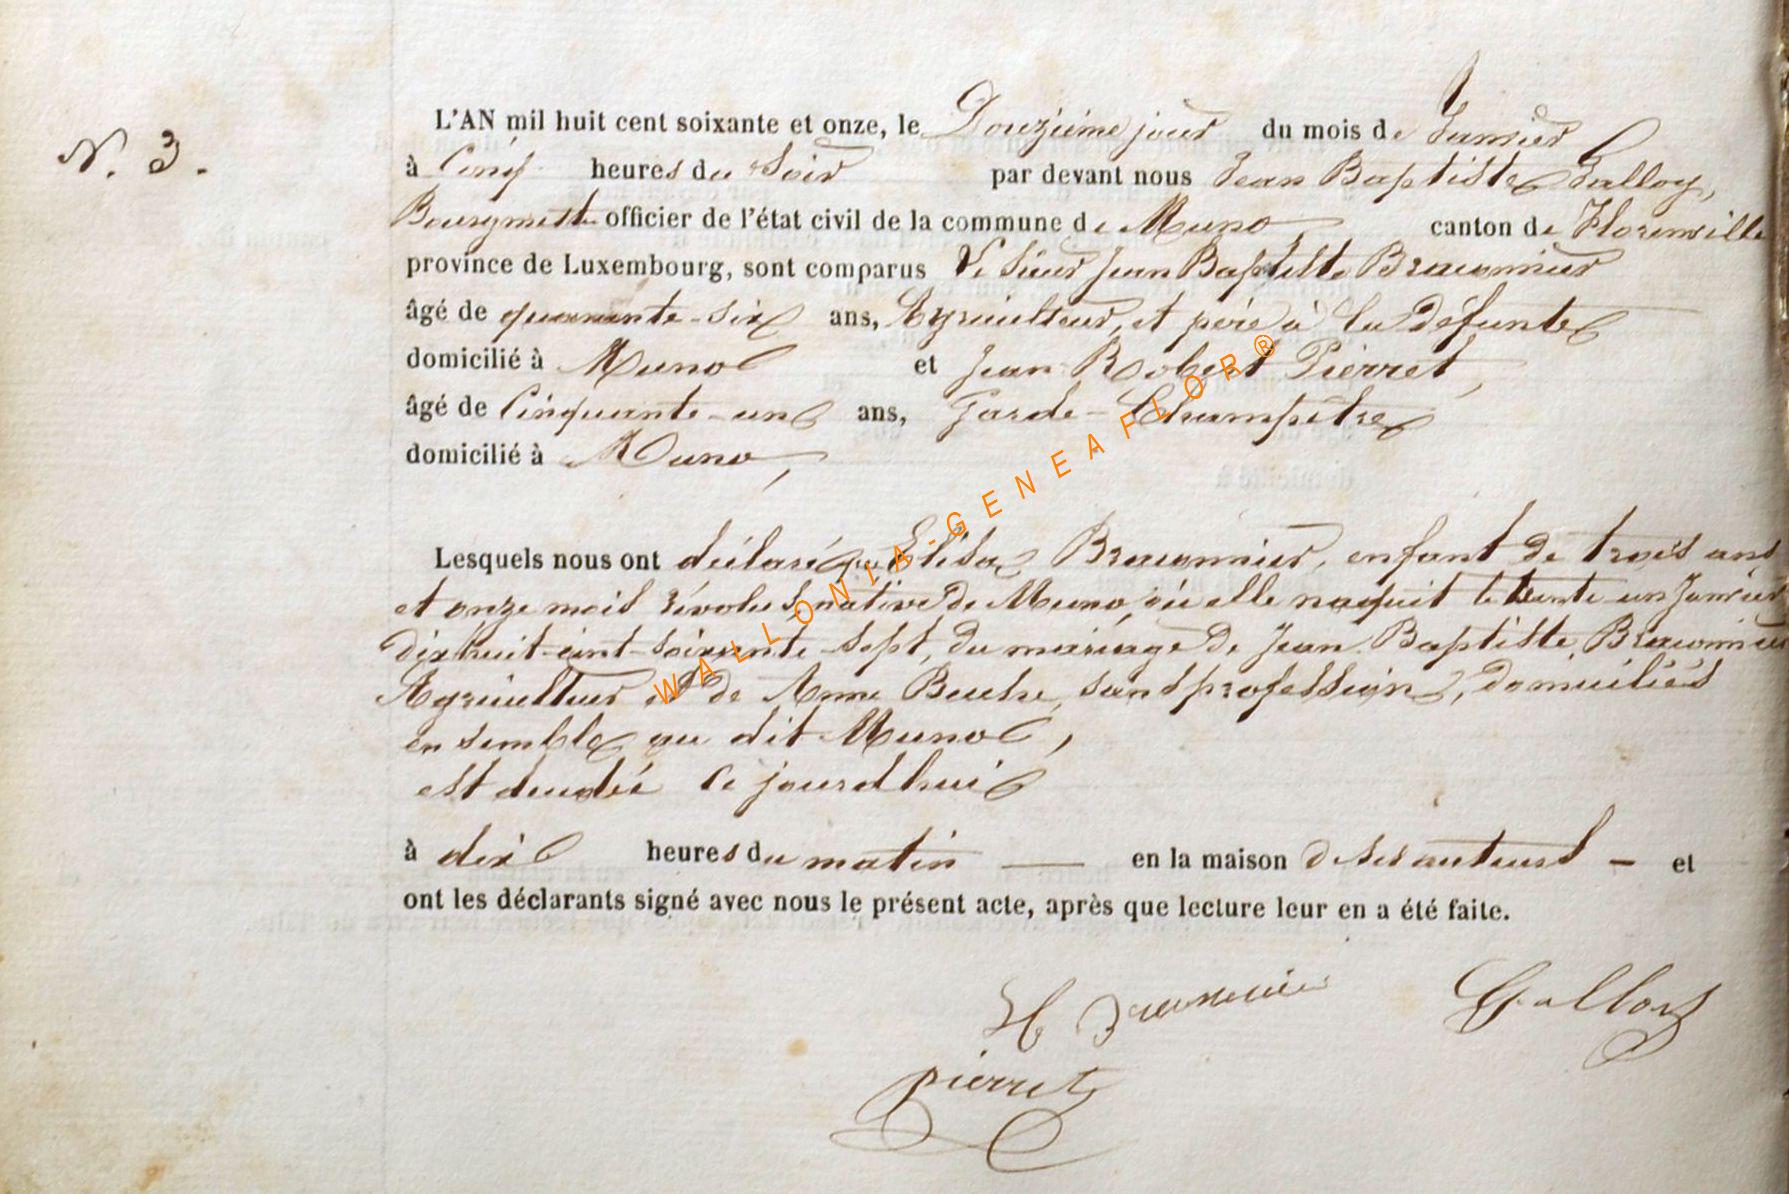 N. 3.
L'AN mil huit cent soixante et onze, le Douzième jour du mois de Janvier
à Cinq heures du Soir par devant nous Jean Baptiste Galloy,
Bourgmestre officier de l'état civil de la commune de Muno, canton de Florenville
province de Luxembourg, sont comparus le Sieur Jean Baptiste Braconnier
âgé de quarante-six ans, Agriculteur, et père à la défunte
domicilié à Muno et Jean Robert Pierret,
âgé de Cinquante-un ans, Garde-Champêtre
domicilié à Muno,
Lesquels nous ont déclaré que Elisa Braconnier, enfant de trois ans
et onze mois révolus, native de Muno, où elle naquit le trente-un Janvier
dix huit-cent-soixante-sept, du mariage de Jean Baptiste Braconnier
Agriculteur et de Anne sans profession, domiciliés
ensemble au dit Muno,
est décédée ce jourd'hui
à dix heures du matin — en la maison de ses auteurs — et
ont les déclarants signé avec nous le présent acte, après que lecture leur en a été faite.
Braconnier Galloy
Pierret
WALLONIA-GENEAFLOR®